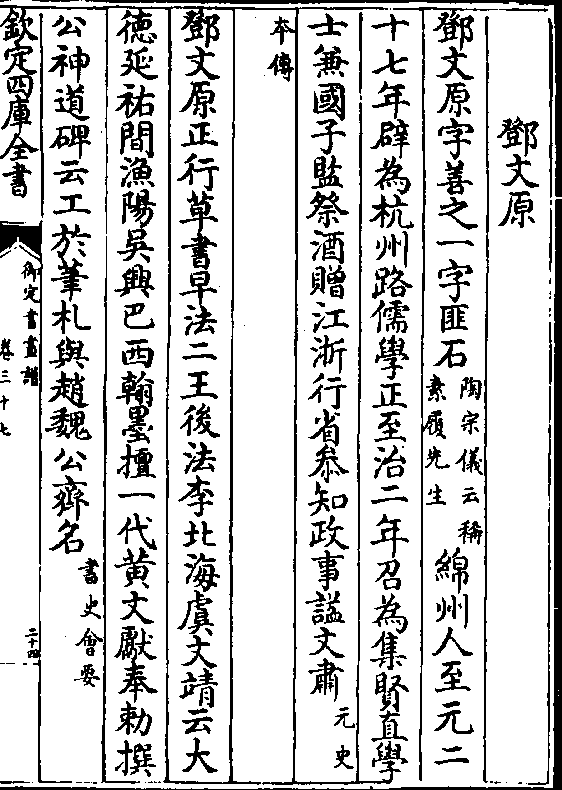 鄧文原
鄧文原字善之一字匪石陶宗儀云稱素履先生綿州人至元二
十七年辟為杭州路儒學正至治二年召為集賢直學
士兼國子監祭酒贈江浙行省叅知政事諡文肅元史
本傳
鄧文原正行草書早法二王後法李北海虞文靖云大
德延祐間漁陽吳興巴西翰墨擅一代黄文獻奉勅撰
公神道碑云工於筆札與趙魏公齊名書史會要
欽定四庫全書
御定書畫譜
卷三十七
二十四